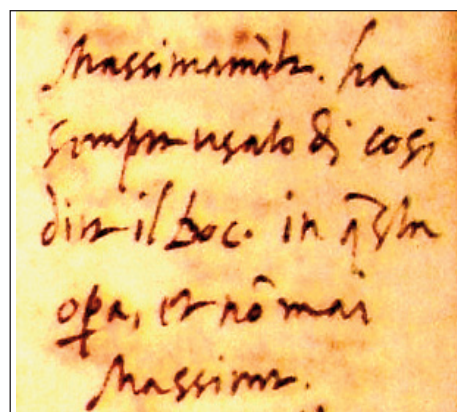 Massimamẽte. ha
sempre usato di cosi
dire il Boc. in q̃sta
oꝑa, et nõ mai
Massime.